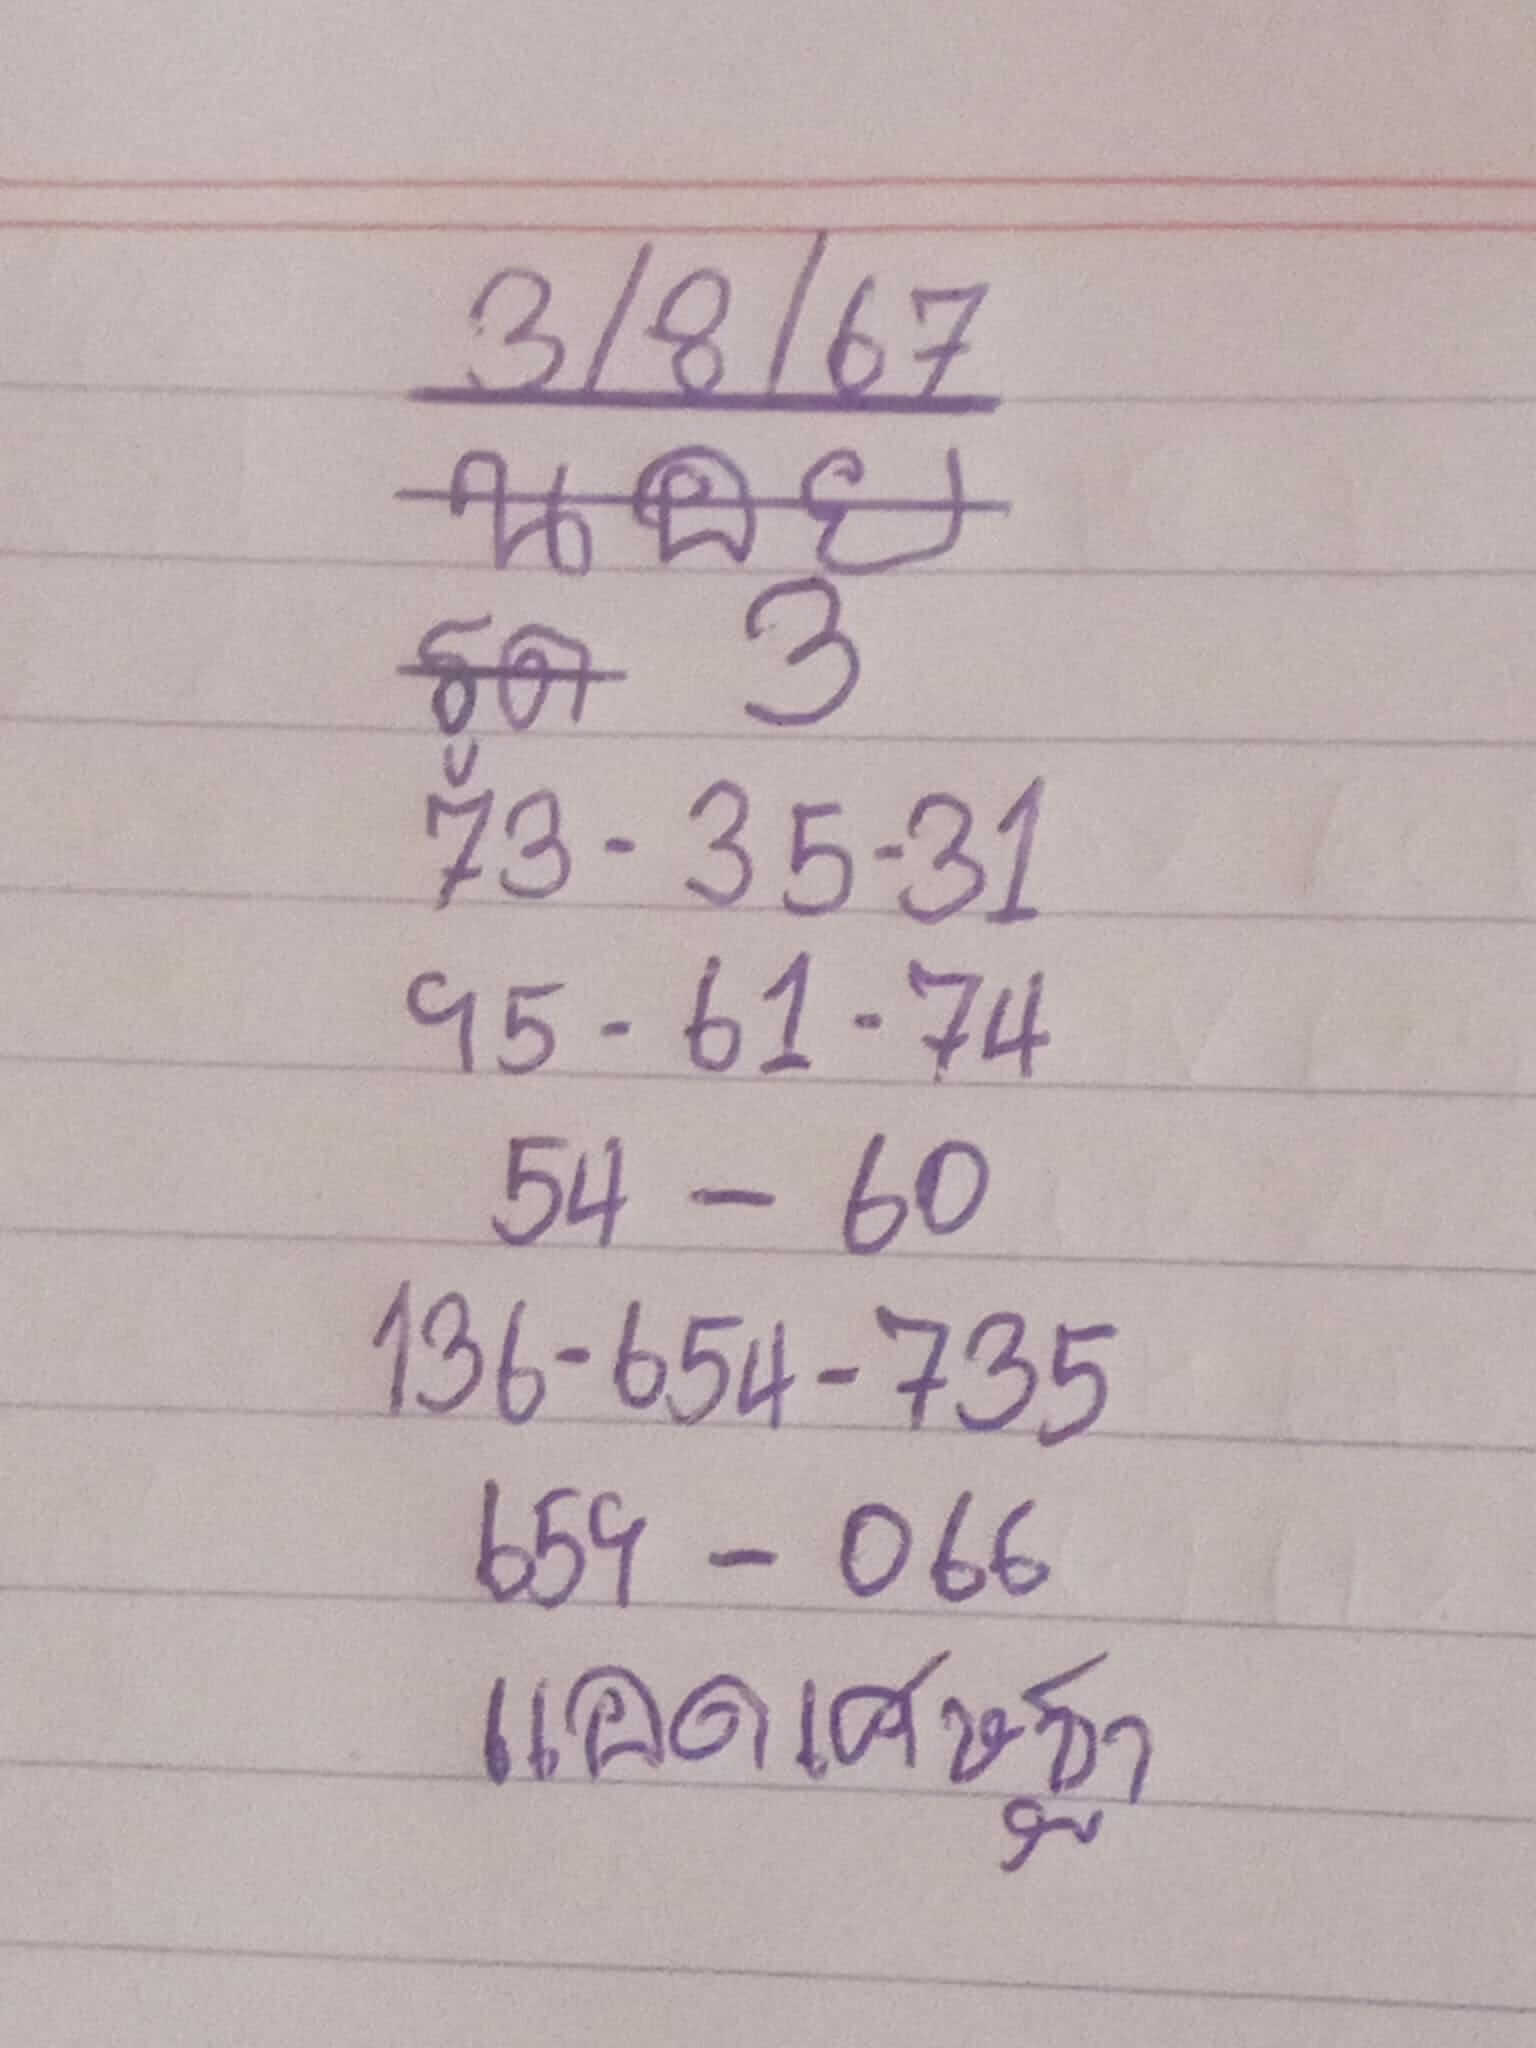 3/8/67
นอย
รูด 3
73 - 35 - 31
95 - 61 - 74
54 - 60
136 - 654 - 735
659 - 066
แอดเศษฐา